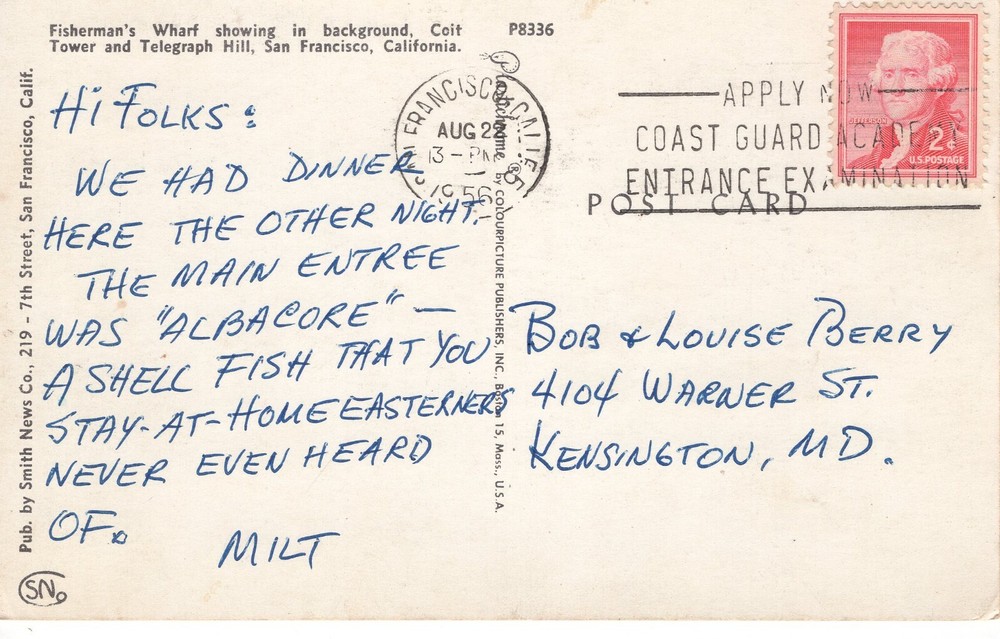 Fisherman's Wharf showing in background, Coit
Tower and Telegraph Hill, San Francisco, California.
P8336
Pub. by Smith News Co., 219 - 7th Street, San Francisco, Calif.
HI FOLKS:
WE HAD DINNER
HERE THE OTHER NIGHT.
THE MAIN ENTREE
WAS "ALBACORE" —
A SHELL FISH THAT YOU
STAY-AT-HOME EASTERNERS
NEVER EVEN HEARD
OF.
MILT
SN
Plastichrome ® by COLOURPICTURE PUBLISHERS, INC., Boston 15, Mass., U.S.A.
FRANCISCO, CALIF.
AUG 2
3-PM
1956
APPLY NOW
COAST GUARD ACADEMY
ENTRANCE EXAMINATION
JEFFERSON
2¢
U.S. POSTAGE
POST CARD
BOB & LOUISE BERRY
4104 WARNER ST.
KENSINGTON, MD.